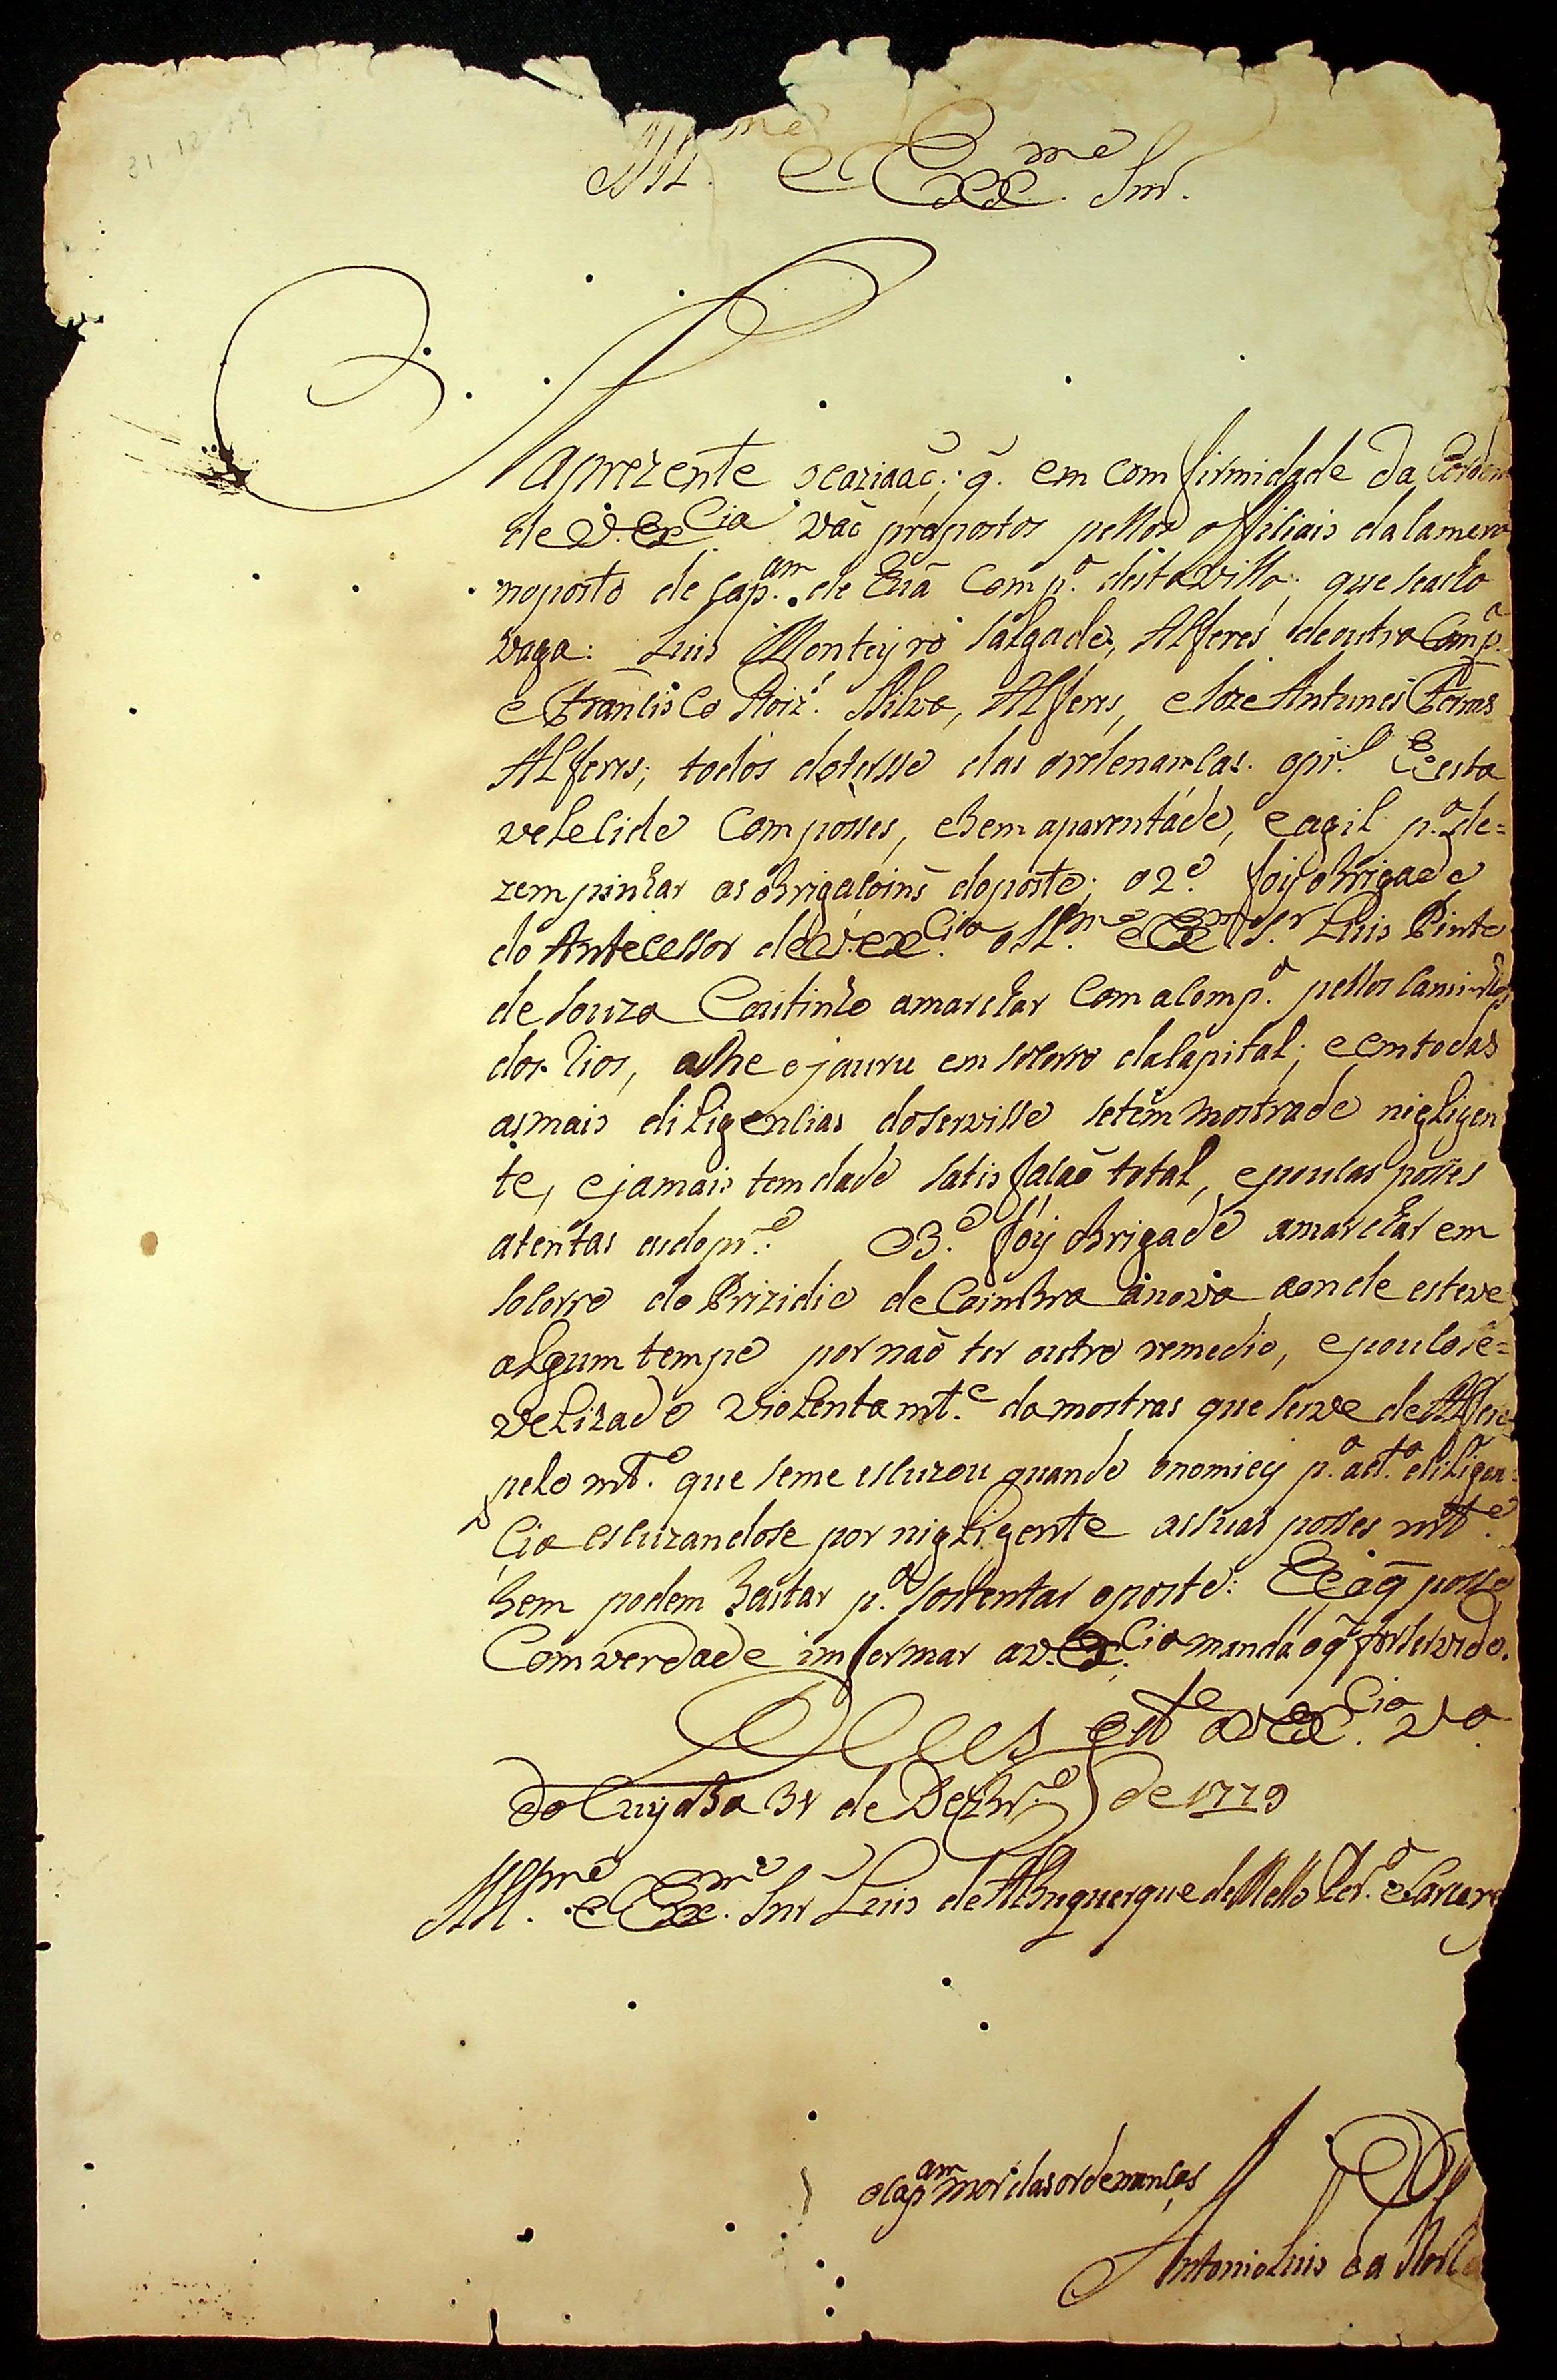 Ill.me e Ex.me Snr.
Na prezente ocaziaaõ; q̃. em comfirmidade da Ordem
de V. Ex.cia vaõ propostos pellos offiçiais da Camera
no posto de Cap.am de huã Comp.a desta Villa, que se acha
vaga: Luis Monteyro Salgado, Alferes de outra Comp.a
e Françisco Roiz.' Silva, Alferes, e Joze Antunes
Alferes; todos do tersso das ordenanças. o pr.o
Com posses, e bem aparentado, e agil p.a de=
zempinhar as obrigaçoins do posto; o 2.o foy obrigado
do Antecessor de V. ex.cia o Il.mo e Ex.mo S.r Luis Pinto
de Souza Coutinho a marchar Com a Comp.a pellos Caminhos
dos Rios, athe o jauru em socorro da Capital; e em todas
as mais diligençias do servisso se tem mostrado nigligen
te, e jamais tem dado satisfaçaõ total, e poucas posses
atentas as do pr.o O 3.o foy obrigado a marchar em
socorro do Prizidio de Coimbra a nova aonde esteve
algum tempo por naõ ter outro remedio, e pouco se=
velizado violentam.te da mostras que serve de Alferes
pelo m.to que se me escuzou quando o nomiey p.a act.a diligen=
çia escuzandose por nigligente as suas posses m.to
bem podem bastar p.a sostentar o posto: He o q̃ posso
Com verdade informar a V. Ex.cia mandá o q̃ for servido.
Deos g.de a V Ex.cia V.a
do Cuyaba 31 de Dezbr.o de 1779
Ill.mo e Ex.mo Snr Luis de Albuquerque de Mello Per.a e Caceres
o Cap.am mor das ordenanças
Antonio Luis da Rocha